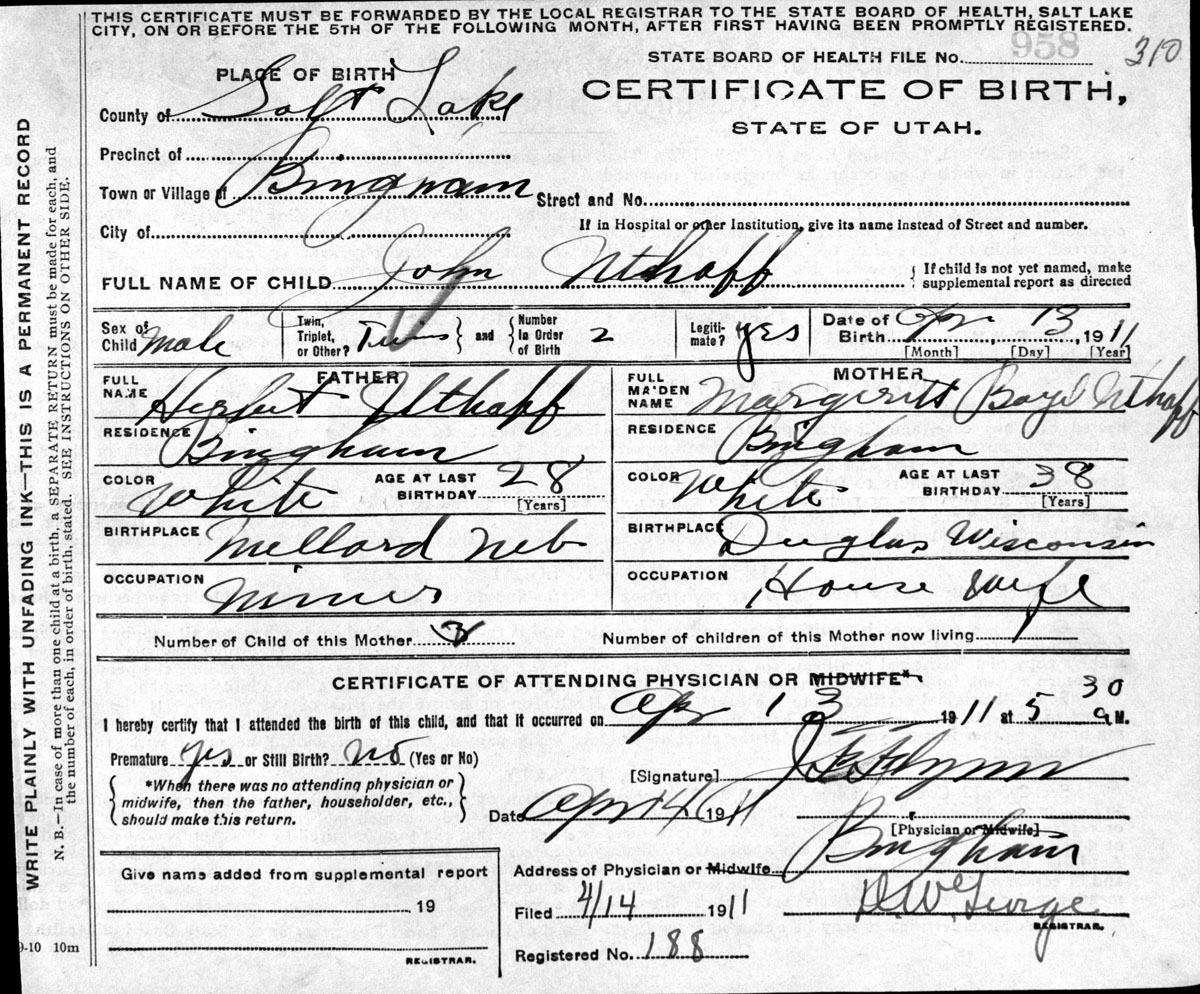 THIS CERTIFICATE MUST BE FORWARDED BY THE LOCAL REGISTRAR TO THE STATE BOARD OF HEALTH, SALT LAKE
CITY, ON OR BEFORE THE 5TH OF THE FOLLOWING MONTH, AFTER FIRST HAVING BEEN PROMPTLY REGISTERED.
STATE BOARD OF HEALTH FILE No. 958 310
PLACE OF BIRTH
CERTIFICATE OF BIRTH,
County of Salt Lake
STATE OF UTAH.
Precinct of
Town or Village of Bingham Street and No.
City of If in Hospital or other Institution, give its name instead of Street and number.
FULL NAME OF CHILD John Uthoff { If child is not yet named, make
supplemental report as directed
Sex of Child Male Twin, Triplet, or Other? Twins } and { Number In Order of Birth 2 Legitimate? yes Date of Birth Apr 13, 1911
[Month] [Day] [Year]
FATHER MOTHER
FULL NAME Herbert Uthoff FULL MAIDEN NAME Margerite Uthoff
RESIDENCE Bingham RESIDENCE Bingham
COLOR White AGE AT LAST BIRTHDAY 28 [Years] COLOR White AGE AT LAST BIRTHDAY 38 [Years]
BIRTHPLACE Millard Neb BIRTHPLACE Duglas Wisconsin
OCCUPATION Miner OCCUPATION House Wife
Number of Child of this Mother Number of children of this Mother now living 1
CERTIFICATE OF ATTENDING PHYSICIAN OR MIDWIFE*
I hereby certify that I attended the birth of this child, and that it occurred on Apr 13 1911 at 5 30 a M.
Premature yes or Still Birth? no (Yes or No)
[Signature] Flynn
{ *When there was no attending physician or
midwife, then the father, householder, etc.,
should make this return. }
Date Apr 14 1911
[Physician or Midwife]
Give name added from supplemental report
Address of Physician or Midwife Bingham
19
Filed 4/14 1911 George
REGISTRAR.
9-10 10m
REGISTRAR.
Registered No. 188
WRITE PLAINLY WITH UNFADING INK—THIS IS A PERMANENT RECORD
N. B.—In case of more than one child at a birth, a SEPARATE RETURN must be made for each, and
the number of each, in order of birth, stated. SEE INSTRUCTIONS ON OTHER SIDE.